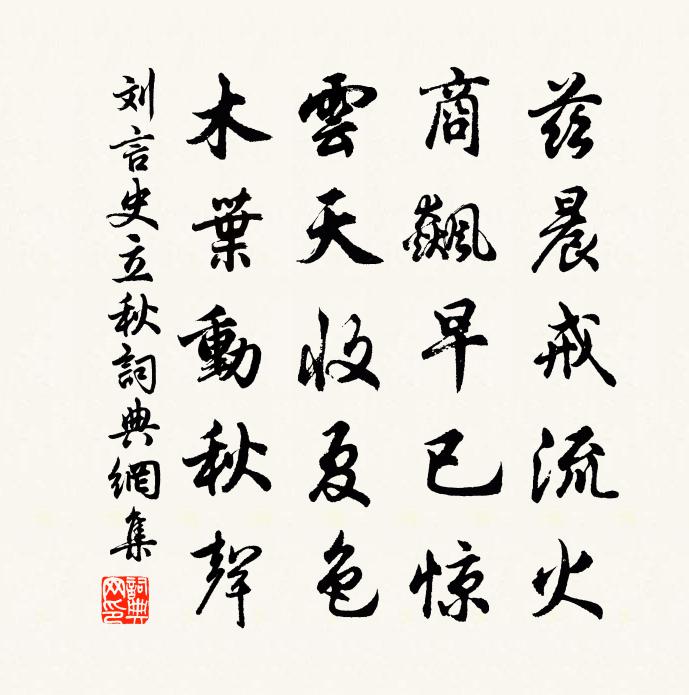 茲晨戒流火
商飆早已惊
雲天收夏色
木葉動秋聲
刘言史立秋詞典網集
詞典網印